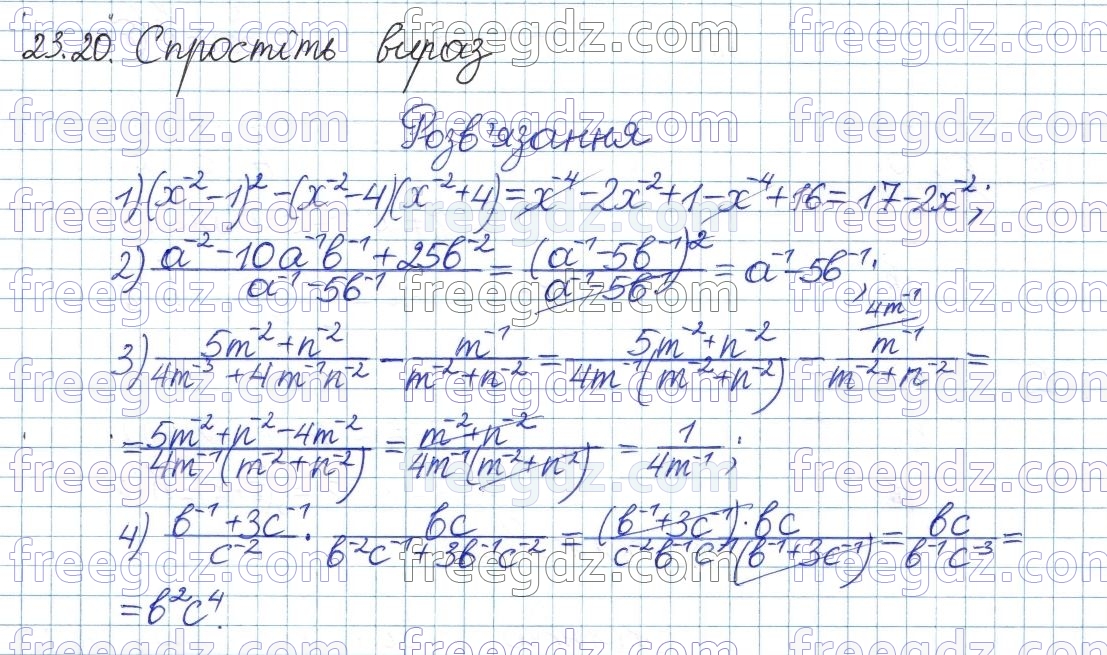 23.20. Спростіть вираз
Розв'язання
1) (x⁻² - 1)² - (x⁻² - 4)(x⁻² + 4) = x⁻⁴ - 2x⁻² + 1 - x⁻⁴ + 16 = 17 - 2x⁻²;
2) (a⁻² - 10a⁻¹b⁻¹ + 25b⁻²)/(a⁻¹ - 5b⁻¹) = (a⁻¹ - 5b⁻¹)²/(a⁻¹ - 5b⁻¹) = a⁻¹ - 5b⁻¹;
4m⁻¹
3) (5m⁻² + n⁻²)/(4m⁻³ + 4m⁻¹n⁻²) - m⁻¹/(m⁻² + n⁻²) = (5m⁻² + n⁻²)/(4m⁻¹(m⁻² + n⁻²)) - m⁻¹/(m⁻² + n⁻²) =
= (5m⁻² + n⁻² - 4m⁻²)/(4m⁻¹(m⁻² + n⁻²)) = (m⁻² + n⁻²)/(4m⁻¹(m⁻² + n⁻²)) = 1/(4m⁻¹);
4) (b⁻¹ + 3c⁻¹)/c⁻² · bc/(b⁻²c⁻¹ + 3b⁻¹c⁻²) = (b⁻¹ + 3c⁻¹)·bc/(c⁻²b⁻¹c⁻¹(b⁻¹ + 3c⁻¹)) = bc/(b⁻¹c⁻³) =
= b²c⁴.
freegdz.com